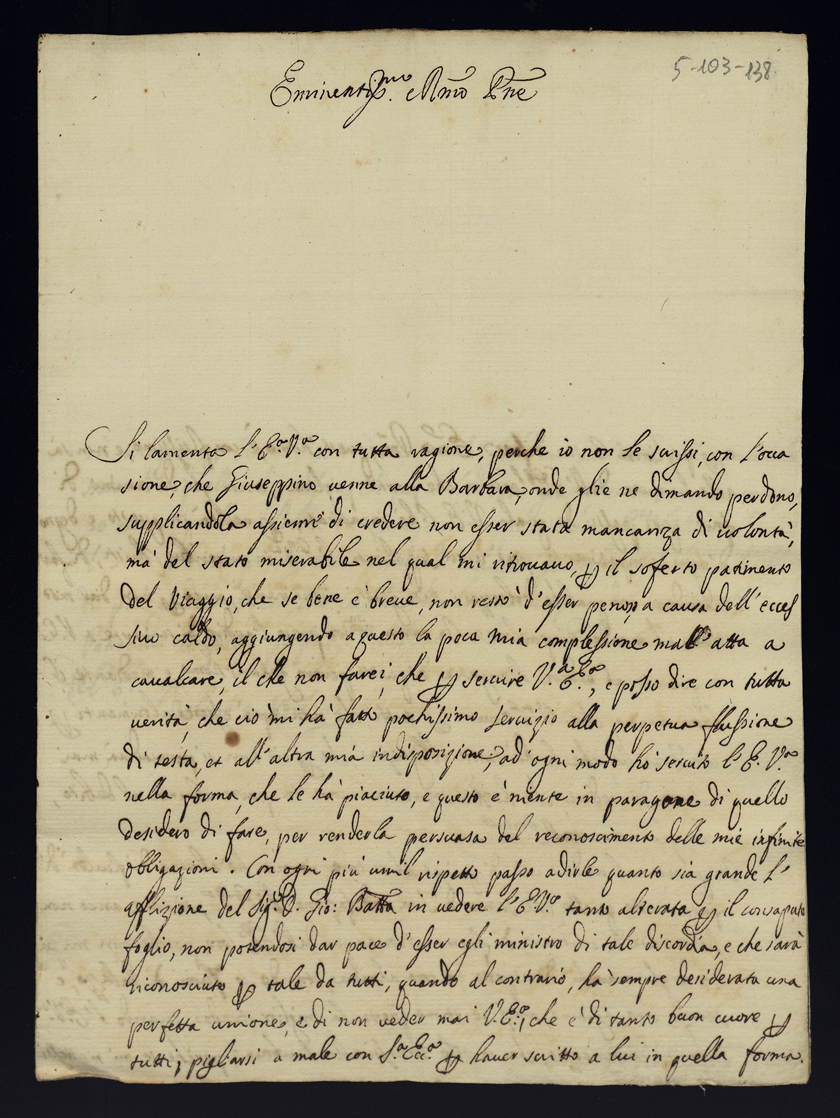 5-103-138
Eminentiss.mo Rmo Pne
Si lamenta l'E.a V.a con tutta ragione, perche io non le scrissi, con l'occa
sione, che Giuseppino uenne alla Barbara, onde glie ne dimando perdono,
supplicandola assieme di credere non esser stata mancanza di uolontà,
mà del stato miserabile nel qual mi ritrouauo, p il soferto patimento
del Viaggio, che se bene è breue, non restò d'esser penoso a causa dell'eccess
siuo caldo, aggiungendo a questo la poca mia complessione mal atta a
caualcare, il che non farei, che p seruire V.a E.a, e posso dire con tutta
uerità, che ciò mi hà fatto pochissimo seruizio alla perpetua flussione
di testa, et all'altra mia indisposizione, ad ogni modo hò seruito l'E. V.a
nella forma, che le hà piaciuto, e questo è niente in paragone di quello
desidero di fare, per renderla persuasa del reconoscimento delle mie infinite
obligazioni. Con ogni più umil rispetto passo a dirle quanto sia grande l'
afflizione del Sig.r D. Gio: Batta in uedere l'E V.a tanto alterata p il consaputo
foglio, non potendosi dar pace d'esser egli ministro di tale discordia, e che sarà
riconosciuto p tale da tutti, quando al contrario, hà sempre desiderata una
perfetta unione, e di non ueder mai V.E.a, che è di tanto buon cuore p
tutti, pigliarsi a male con S.a Ecc.a p hauer scritto a lui in quella forma.